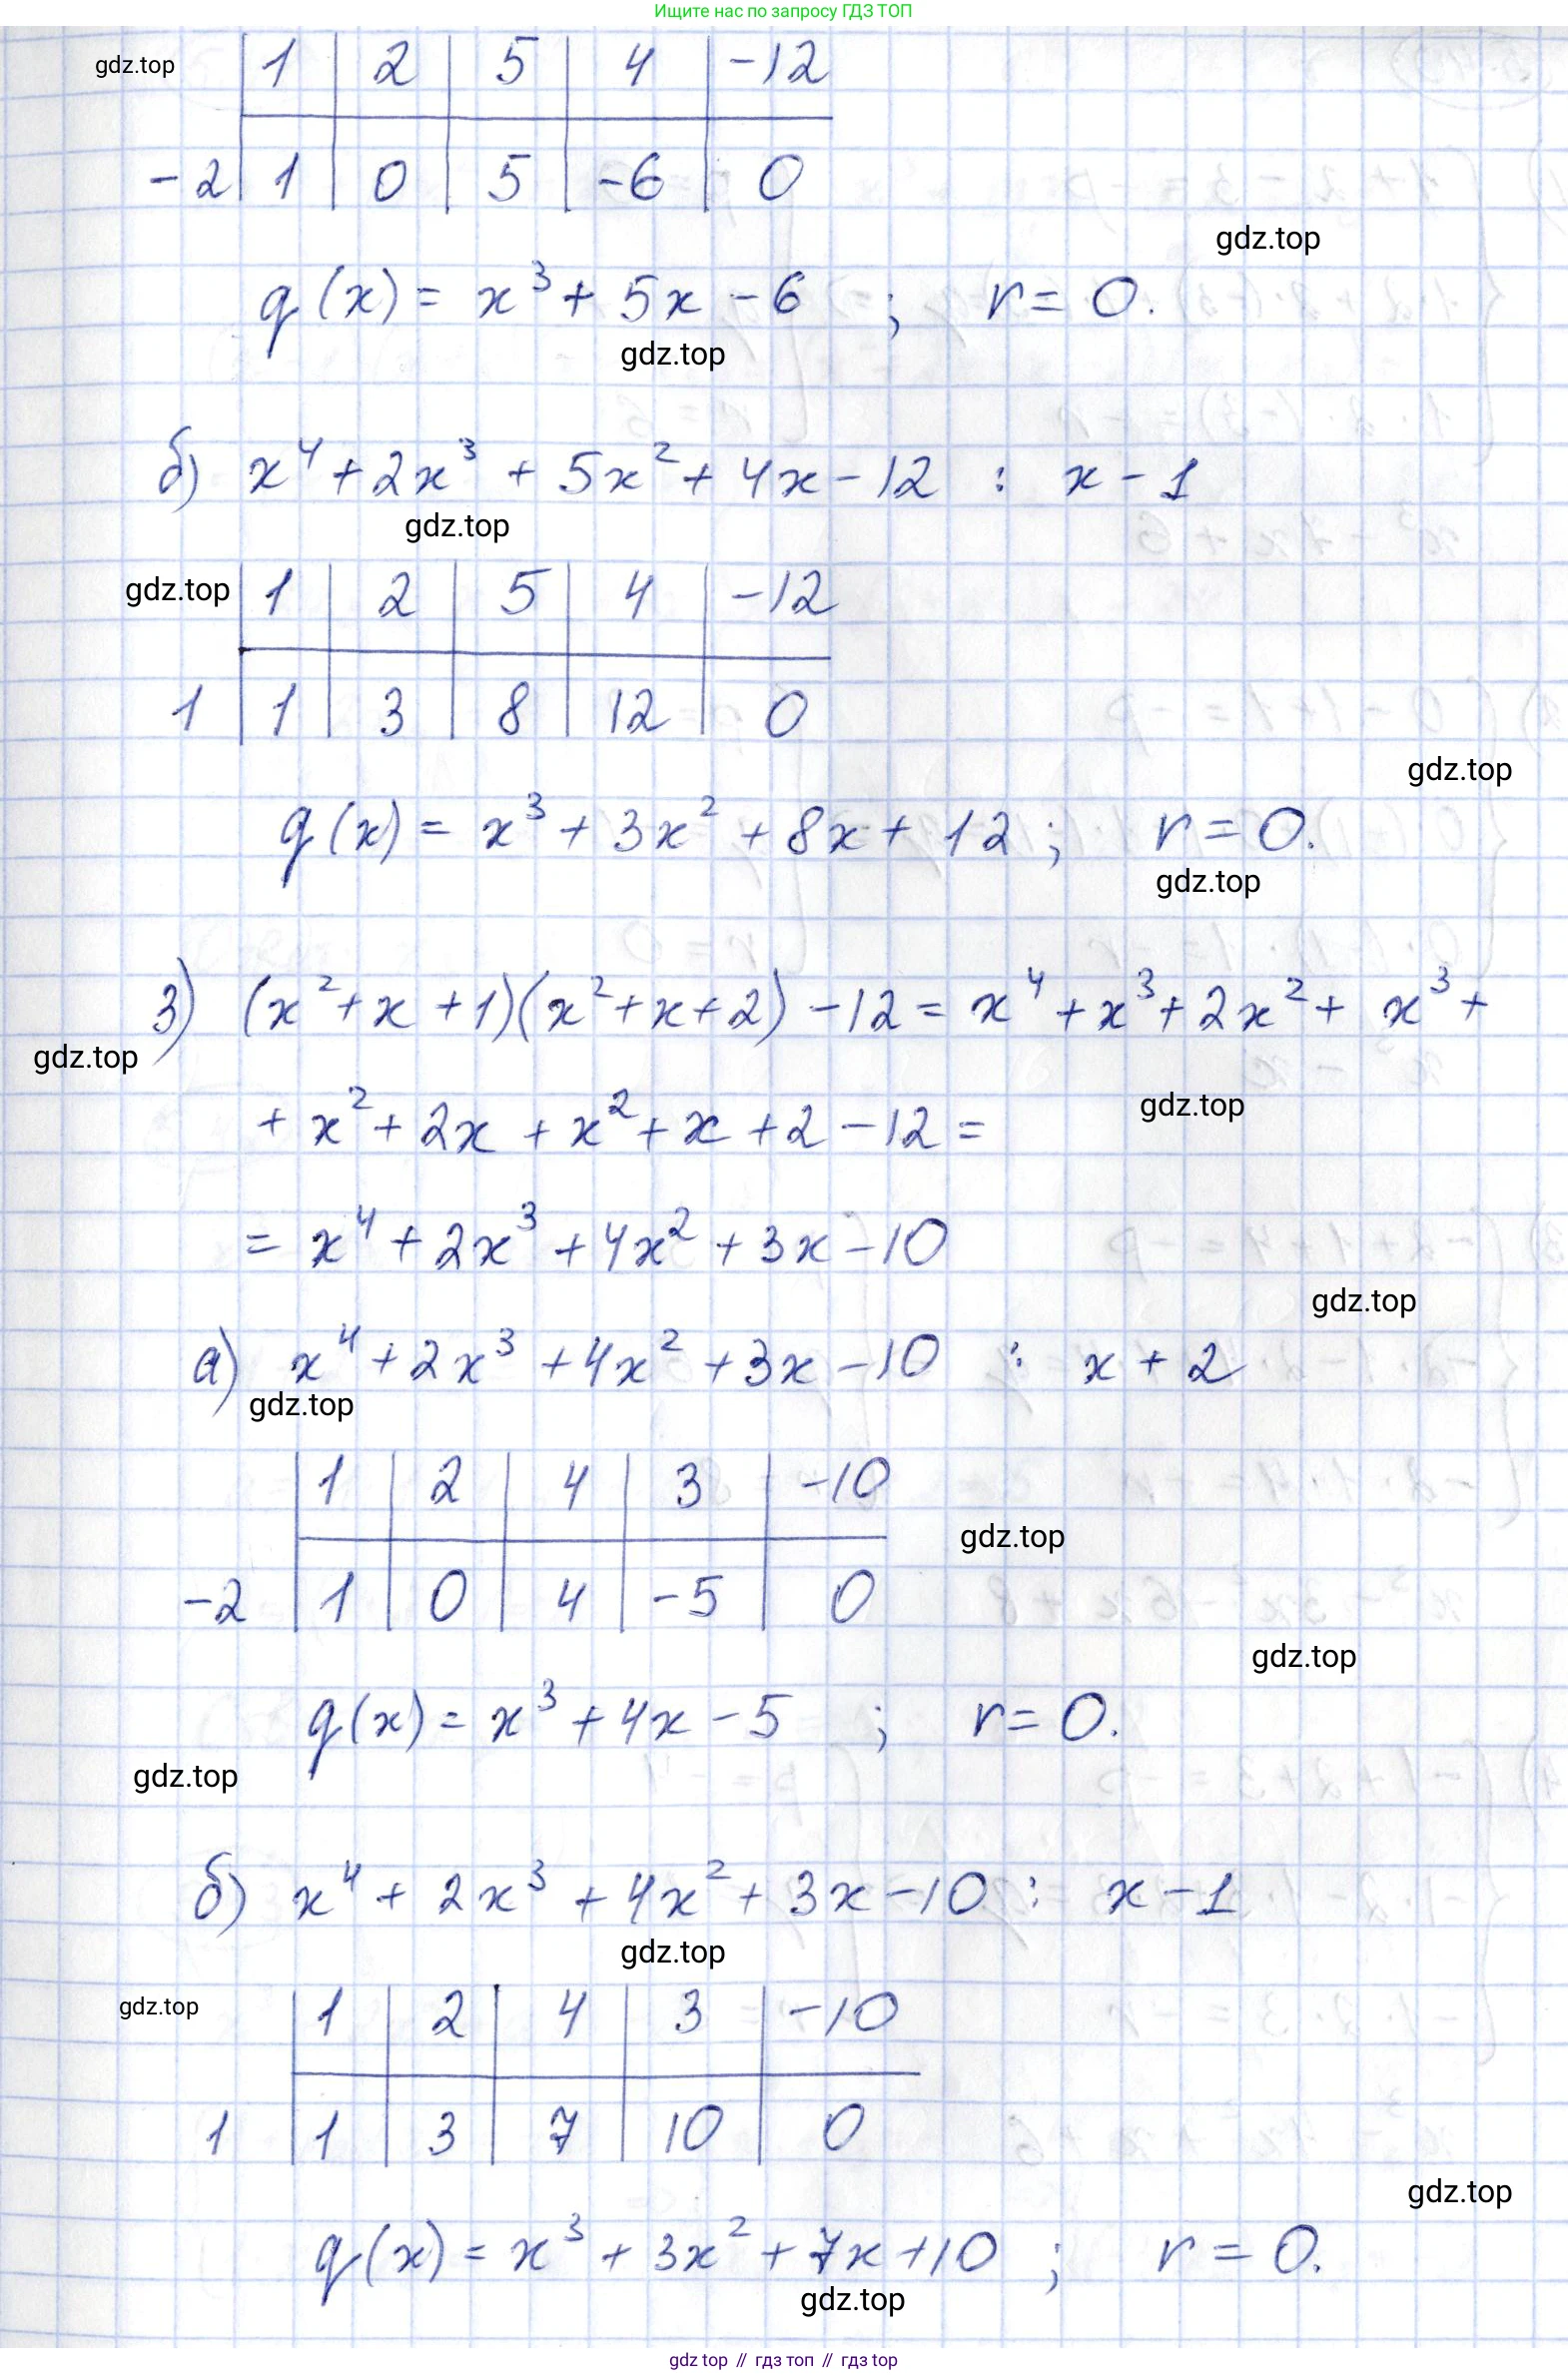 Ищите нас по запросу ГДЗ ТОП
gdz.top | 1 | 2 | 5 | 4 | -12
-2 | 1 | 0 | 5 | -6 | 0
gdz.top
q(x) = x³ + 5x - 6 ; r = 0.
gdz.top
б) x⁴ + 2x³ + 5x² + 4x - 12 : x - 1
gdz.top
gdz.top | 1 | 2 | 5 | 4 | -12
1 | 1 | 3 | 8 | 12 | 0
gdz.top
q(x) = x³ + 3x² + 8x + 12 ; r = 0.
gdz.top
3) (x² + x + 1)(x² + x + 2) - 12 = x⁴ + x³ + 2x² + x³ +
gdz.top
+ x² + 2x + x² + x + 2 - 12 =
gdz.top
= x⁴ + 2x³ + 4x² + 3x - 10
gdz.top
а) x⁴ + 2x³ + 4x² + 3x - 10 : x + 2
gdz.top
| 1 | 2 | 4 | 3 | -10
gdz.top
-2 | 1 | 0 | 4 | -5 | 0
gdz.top
q(x) = x³ + 4x - 5 ; r = 0.
gdz.top
б) x⁴ + 2x³ + 4x² + 3x - 10 : x - 1
gdz.top
gdz.top | 1 | 2 | 4 | 3 | -10
1 | 1 | 3 | 7 | 10 | 0
gdz.top
q(x) = x³ + 3x² + 7x + 10 ; r = 0.
gdz.top
gdz top // гдз топ // гдз top